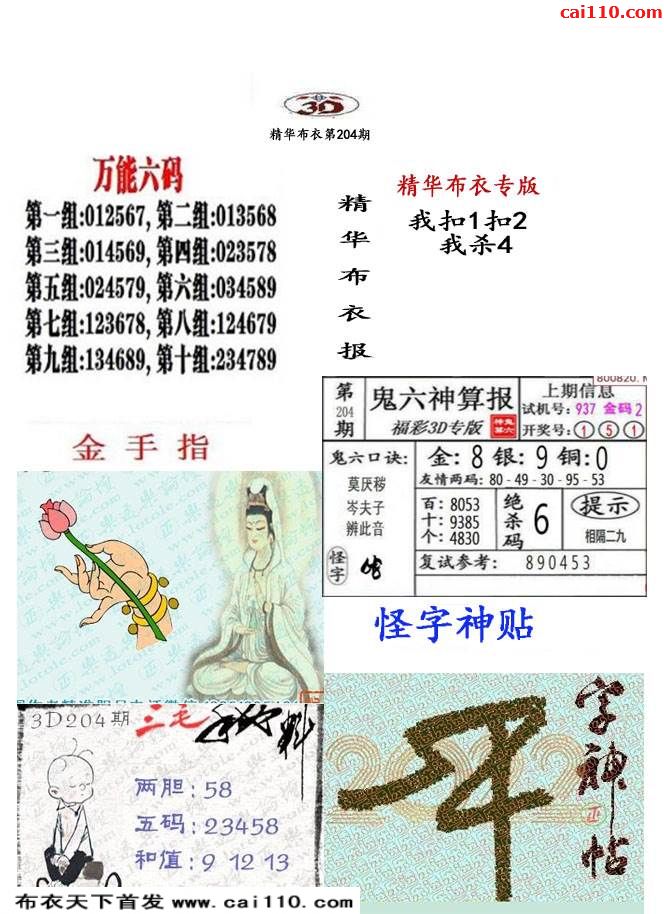 cai110.com
3D
精华布衣第204期
万能六码
第一组:012567,第二组:013568
第三组:014569,第四组:023578
第五组:024579,第六组:034589
第七组:123678,第八组:124679
第九组:134689,第十组:234789
精华布衣报
精华布衣专版
我扣1扣2
我杀4
金手指
800820.
第204期
鬼六神算报
福彩3D专版
上期信息
试机号:937 金码2
开奖号:①⑤①
鬼六口诀:
莫厌秽
岑夫子
辨此音
怪字
金:8 银:9 铜:0
友情两码:80-49-30-95-53
百:8053
十:9385
个:4830
绝杀码
6
提示
相隔二九
复试参考: 890453
怪字神贴
3D204期
三毛
两胆:58
五码:23458
和值:9 12 13
字神帖
布衣天下首发 www.cai110.com